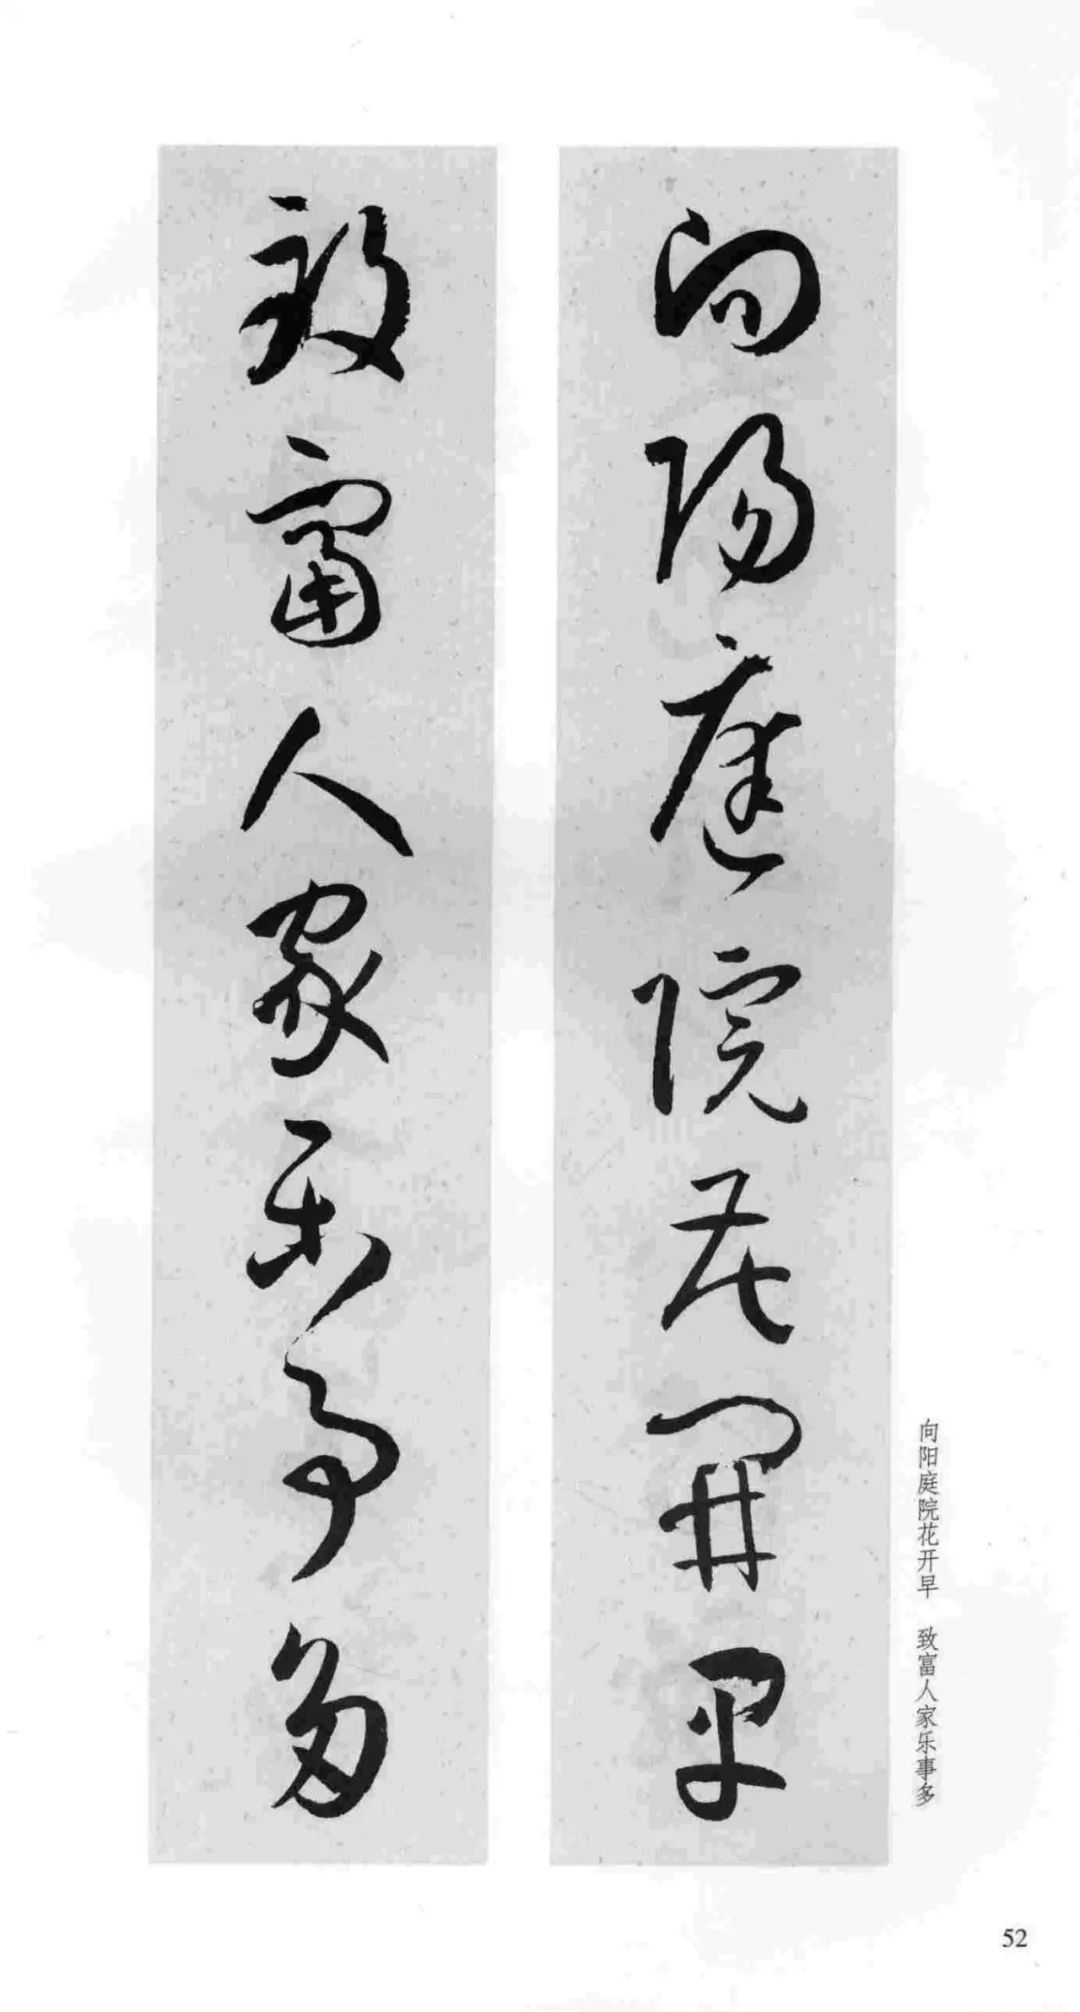 向阳庭院花开早
致富人家乐事多
向阳庭院花开早 致富人家乐事多
52